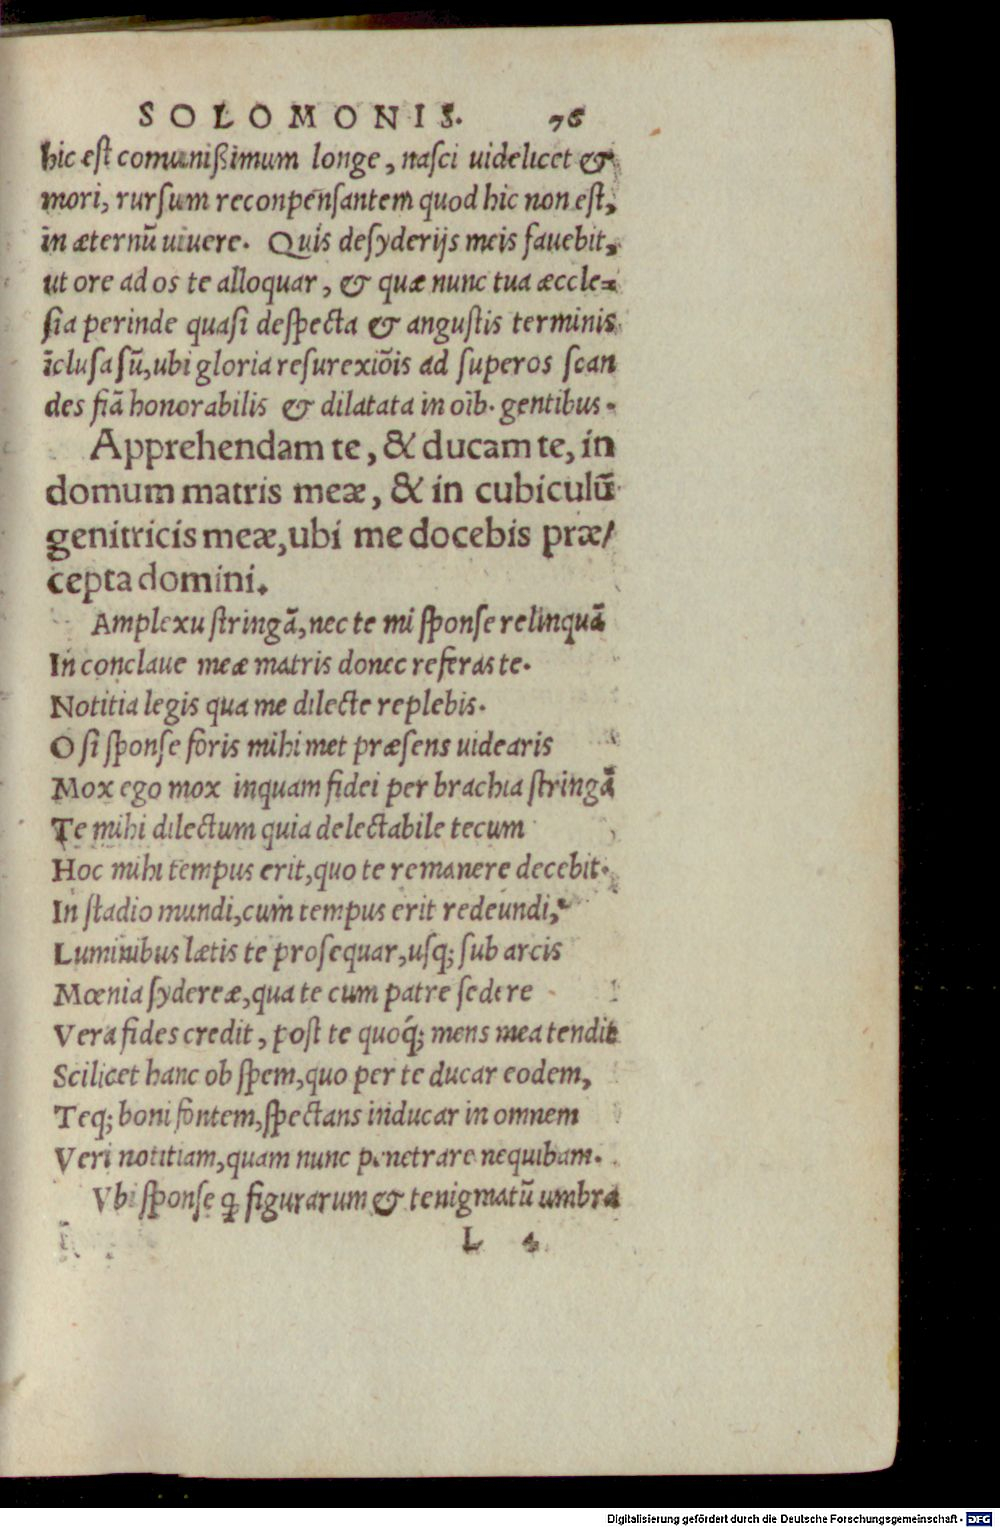 SOLOMONIS. 76
hic est comunißimum longe, nasci uidelicet &
mori, rursum reconpēnsantem quod hic non est,
in æternũ uiuere. Quis desyderijs meis fauebit,
ut ore ad os te alloquar, & quæ nunc tua æccle=
sia perinde quasi despecta & angustis terminis
ĩclusa sũ, ubi gloria resurexiõis ad superos scan
des fiã honorabilis & dilatata in oĩb. gentibus.
Apprehendam te, & ducam te, in
domum matris meæ, & in cubiculũ
genitricis meæ, ubi me docebis præ/
cepta domini.
Amplexu stringã, nec te mi sponse relinquã
In conclaue meæ matris donec referas te.
Notitia legis qua me dilecte replebis.
O si sponse foris mihimet præsens uidearis
Mox ego mox inquam fidei per brachia stringã
Te mihi dilectum quia delectabile tecum
Hoc mihi tempus erit, quo te remanere decebit.
In stadio mundi, cum tempus erit redeundi,
Luminibus lætis te prosequar, usq; sub arcis
Mœnia sydereæ, qua te cum patre sedere
Vera fides credit, post te quoq́; mens mea tendit
Scilicet hanc ob spem, quo per te ducar eodem,
Teq; boni fontem, spectans inducar in omnem
Veri notitiam, quam nunc penetrare nequibam.
Vbi sponse ꝗ figurarum & tenigmatũ umbra
L 4
Digitalisierung gefördert durch die Deutsche Forschungsgemeinschaft - DFG